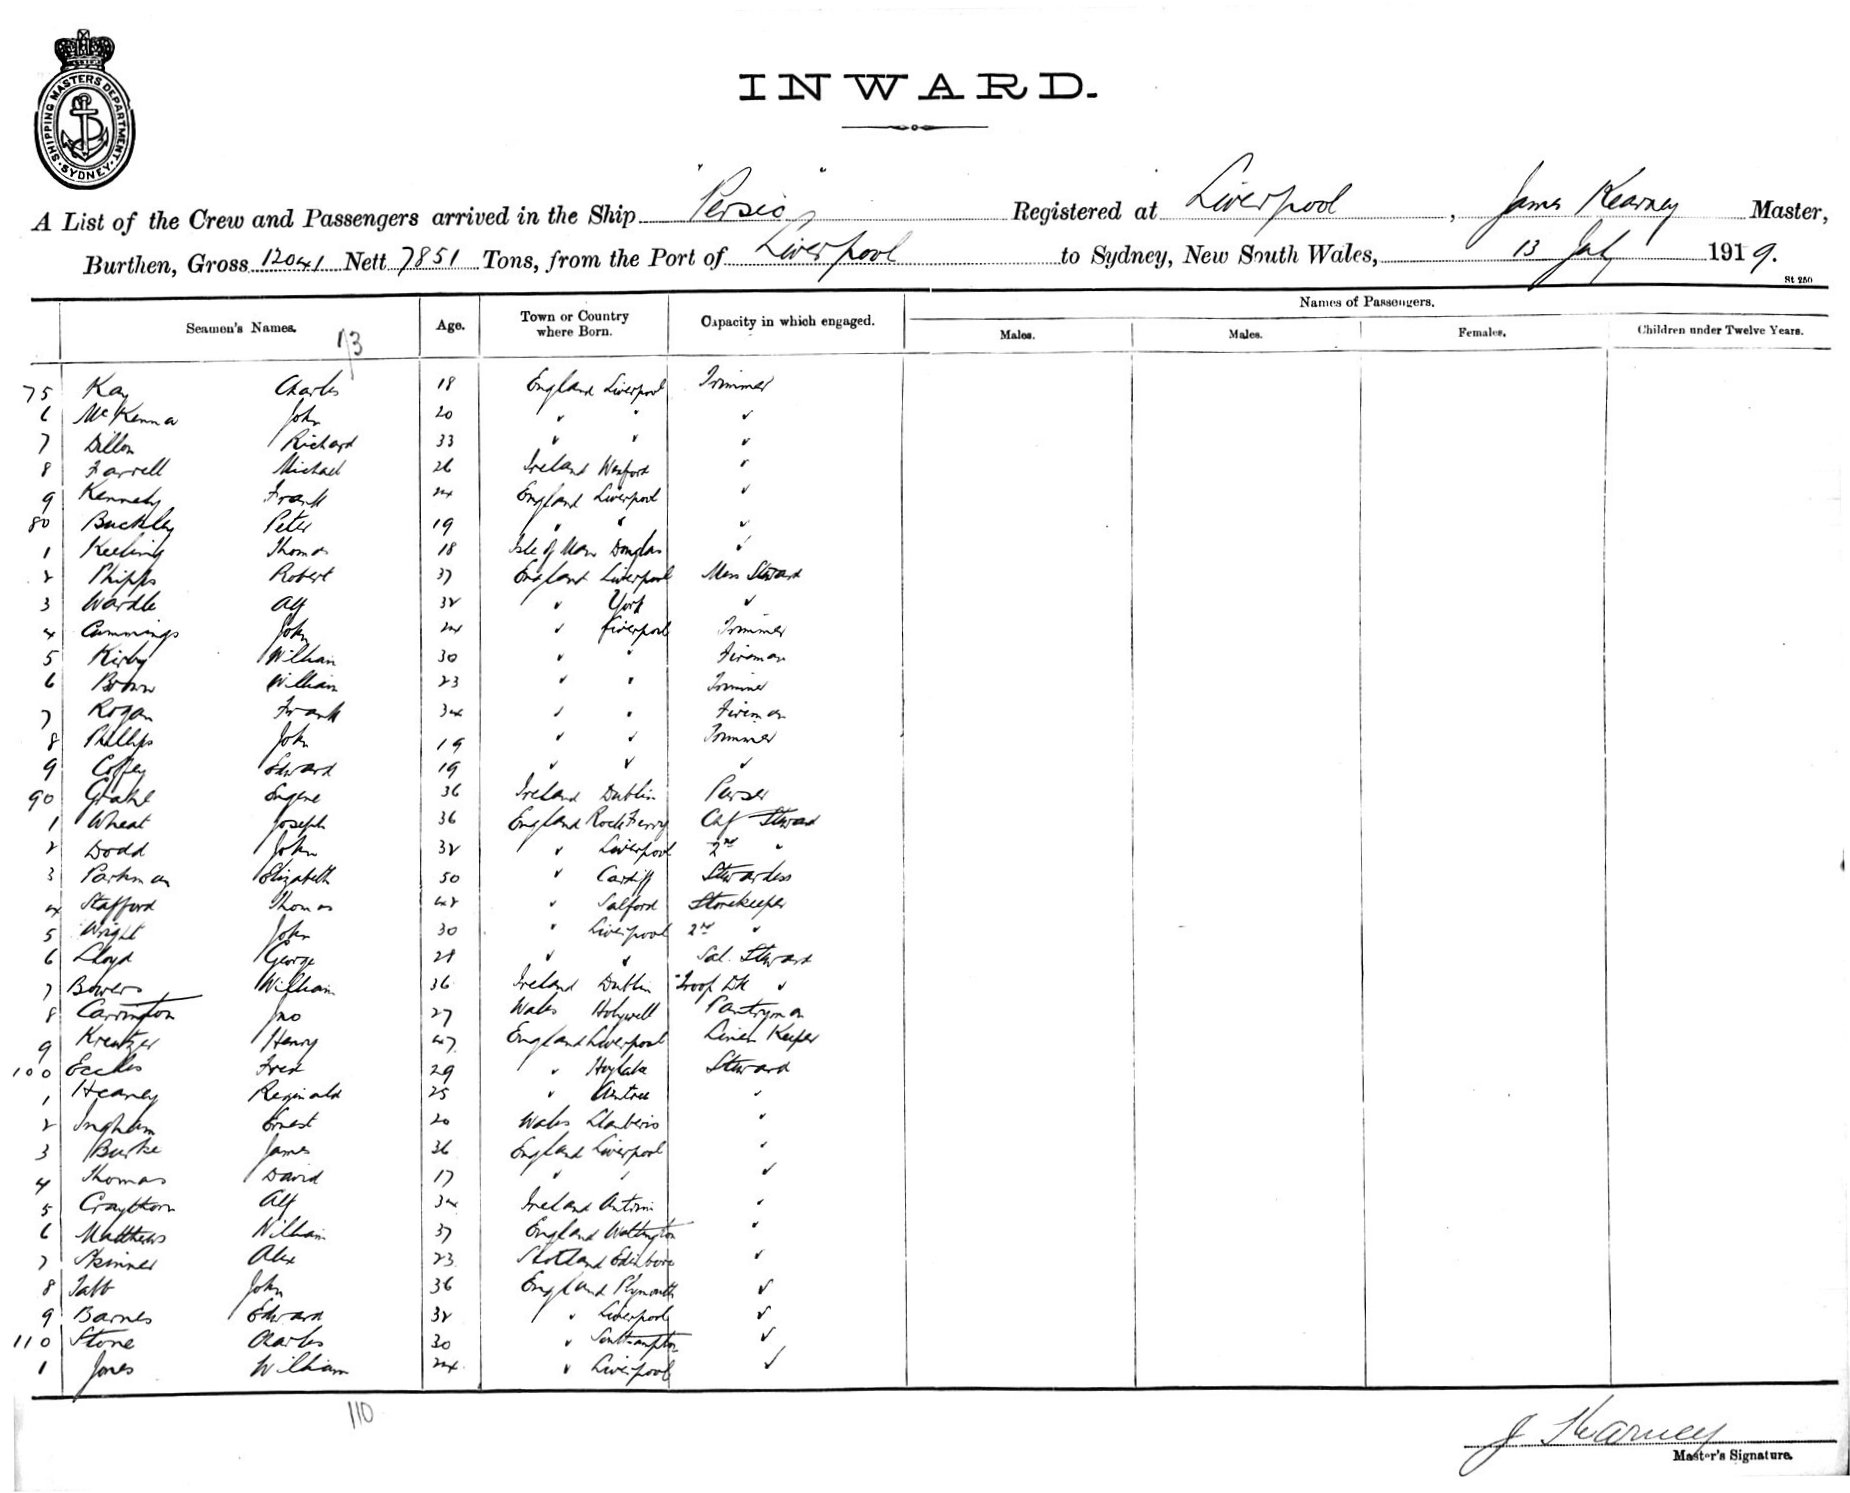 SHIPPING MASTERS DEPARTMENT
SYDNEY
INWARD.
A List of the Crew and Passengers arrived in the Ship "Persic" Registered at Liverpool, James Kearney Master,
Burthen, Gross 12041 Nett 7851 Tons, from the Port of Liverpool to Sydney, New South Wales, 13 July 1919.
St 250
Seamen's Names. Age. Town or Country where Born. Capacity in which engaged. Names of Passengers.
Males. Males. Females. Children under Twelve Years.
73
75 Kay Charles 18 England Liverpool Trimmer
6 McKenna John 20 " " "
7 Dillon Richard 33 " " "
8 Farrell Michael 26 Ireland Wexford "
9 Kennedy Frank 24 England Liverpool "
80 Buckley Peter 19 " " "
1 Keeling Thomas 18 Isle of Man Douglas "
2 Phipps Robert 37 England Liverpool Mess Steward
3 Wardle Alf 32 " York "
4 Cummings John 24 " Liverpool Trimmer
5 Kirby William 30 " " Fireman
6 Brown William 23 " " Trimmer
7 Rogan Frank 34 " " Fireman
8 Phillips John 19 " " Trimmer
9 Coffey Edward 19 " " "
90 Eugene 36 Ireland Dublin Purser
1 Wheat Joseph 36 England Rock Ferry Chf Steward
2 Dodd John 32 " Liverpool 2nd "
3 Parkman Elizabeth 50 " Cardiff Stewardess
4 Stafford Thomas 42 " Salford Storekeeper
5 Wright John 30 " Liverpool 2nd "
6 Lloyd George 28 " " Sal. Steward
7 Bowers William 36 Ireland Dublin Troop Dk "
8 Carrington Jno 27 Wales Holywell Pantryman
9 Kreutzer Henry 47 England Liverpool Linen Keeper
100 Eccles Fred 29 " Hoylake Steward
1 Heaney Reginald 25 " Aintree "
2 Ingham Ernest 20 Wales Llanberis "
3 Burke James 36 England Liverpool "
4 Thomas David 17 " " "
5 Craythorn Alf 34 Ireland Antrim "
6 Matthews William 37 England "
7 Skinner Alex 23 Scotland Edinboro "
8 Tabb John 36 England Plymouth "
9 Barnes Edward 32 " Liverpool "
110 Stone Charles 30 " Southampton "
1 Jones William 24 " Liverpool "
110
J Kearney
Master's Signature.